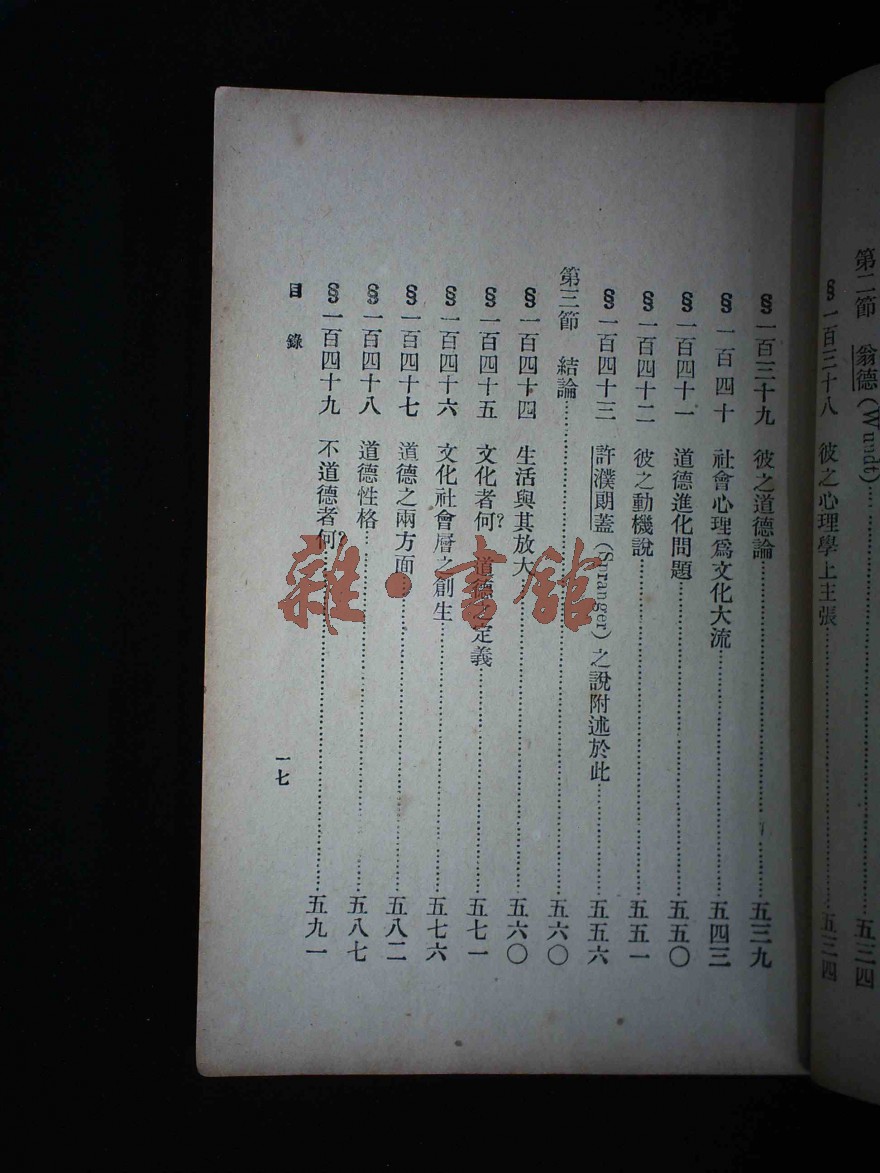 第二節　翁德(Wundt)……五三四
§一百三十八　彼之心理學上主張……五三四
§一百三十九　彼之道德論……五三九
§一百四十　社會心理爲文化大流……五四三
§一百四十一　道德進化問題……五五〇
§一百四十二　彼之動機說……五五一
§一百四十三　許濮朗蓋(Spranger)之說附述於此……五五六
第三節　結論……五六〇
§一百四十四　生活與其放大……五六〇
§一百四十五　文化者何？道德之定義……五七一
§一百四十六　文化社會層之創生……五七六
§一百四十七　道德之兩方面……五八二
§一百四十八　道德性格……五八七
§一百四十九　不道德者何？……五九一
目錄
一七
雜·書館